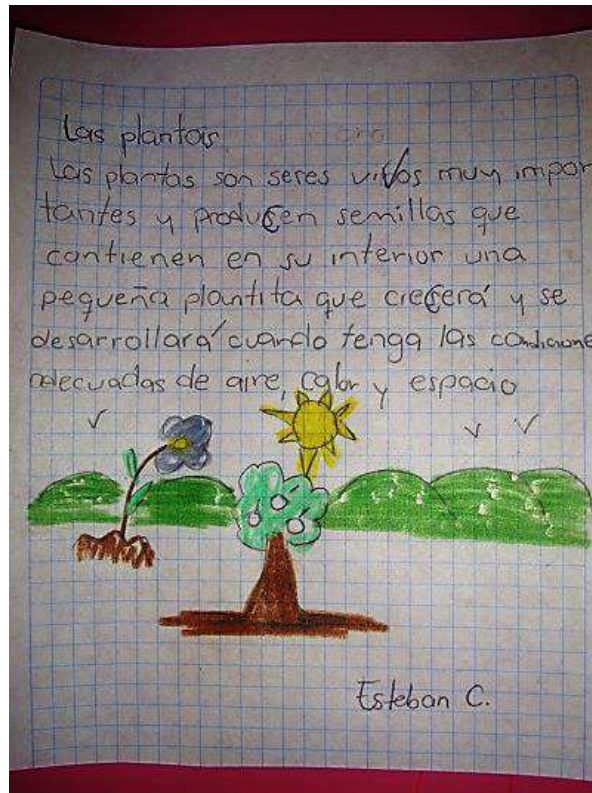 Las plantas
Las plantas son seres vivos muy impor
tantes y producen semillas que
contienen en su interior una
pequeña plantita que crecerá y se
desarrollará cuando tenga las condicione
adecuadas de aire, calor y espacio
Esteban C.